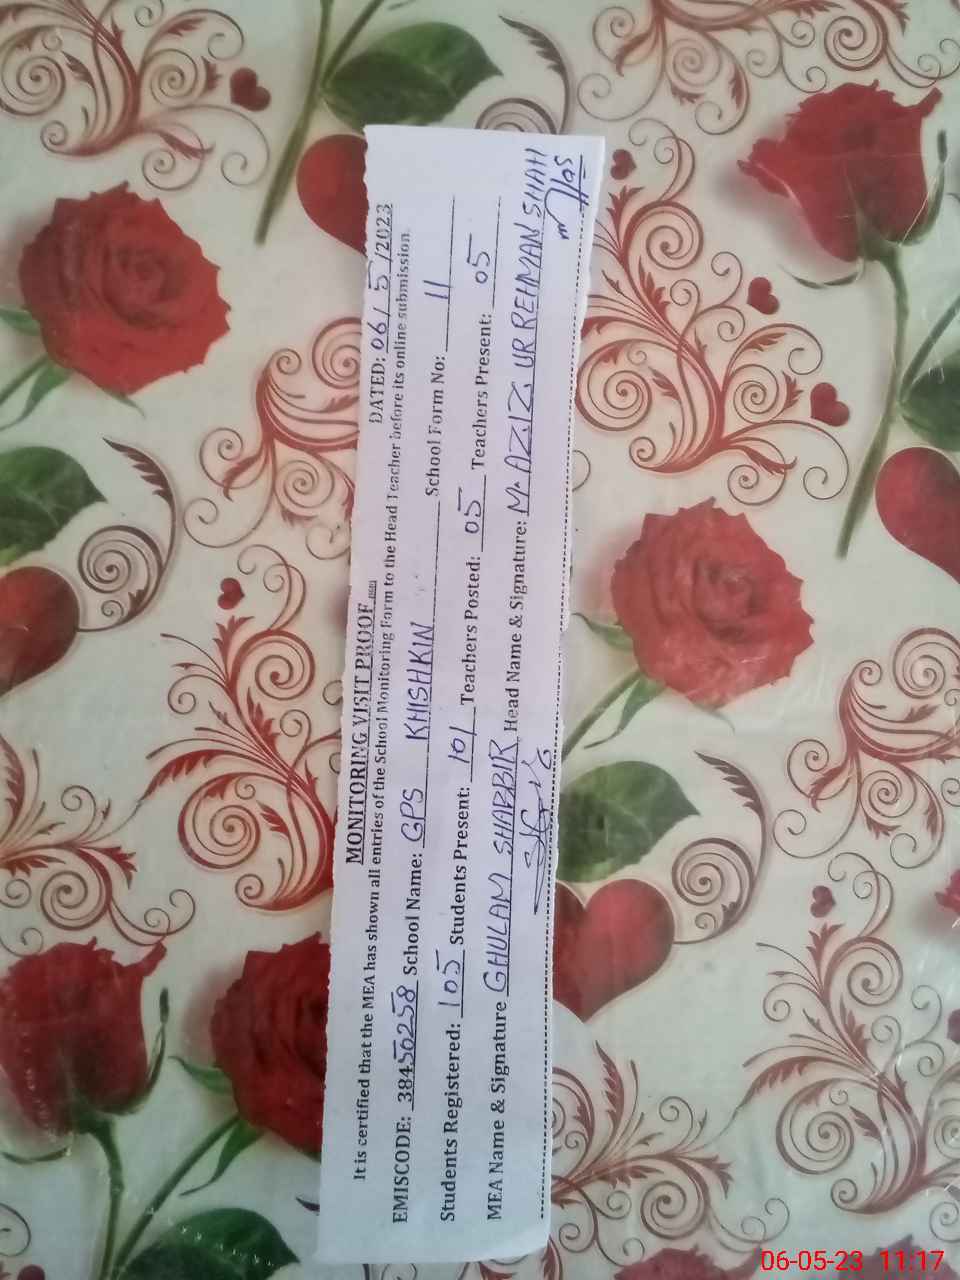 MONITORING VISIT PROOF DATED: 06/5/2023
It is certified that the MEA has shown all entries of the School Monitoring Form to the Head Teacher before its online submission.
EMISCODE: 38456258 School Name: GPS KHISHKIN School Form No: 11
Students Registered: 105 Students Present: 101 Teachers Posted: 05 Teachers Present: 05
MEA Name & Signature GHULAM SHABBIR Head Name & Signature: M. AZIZ UR REHMAN SHAH
06-05-23 11:17